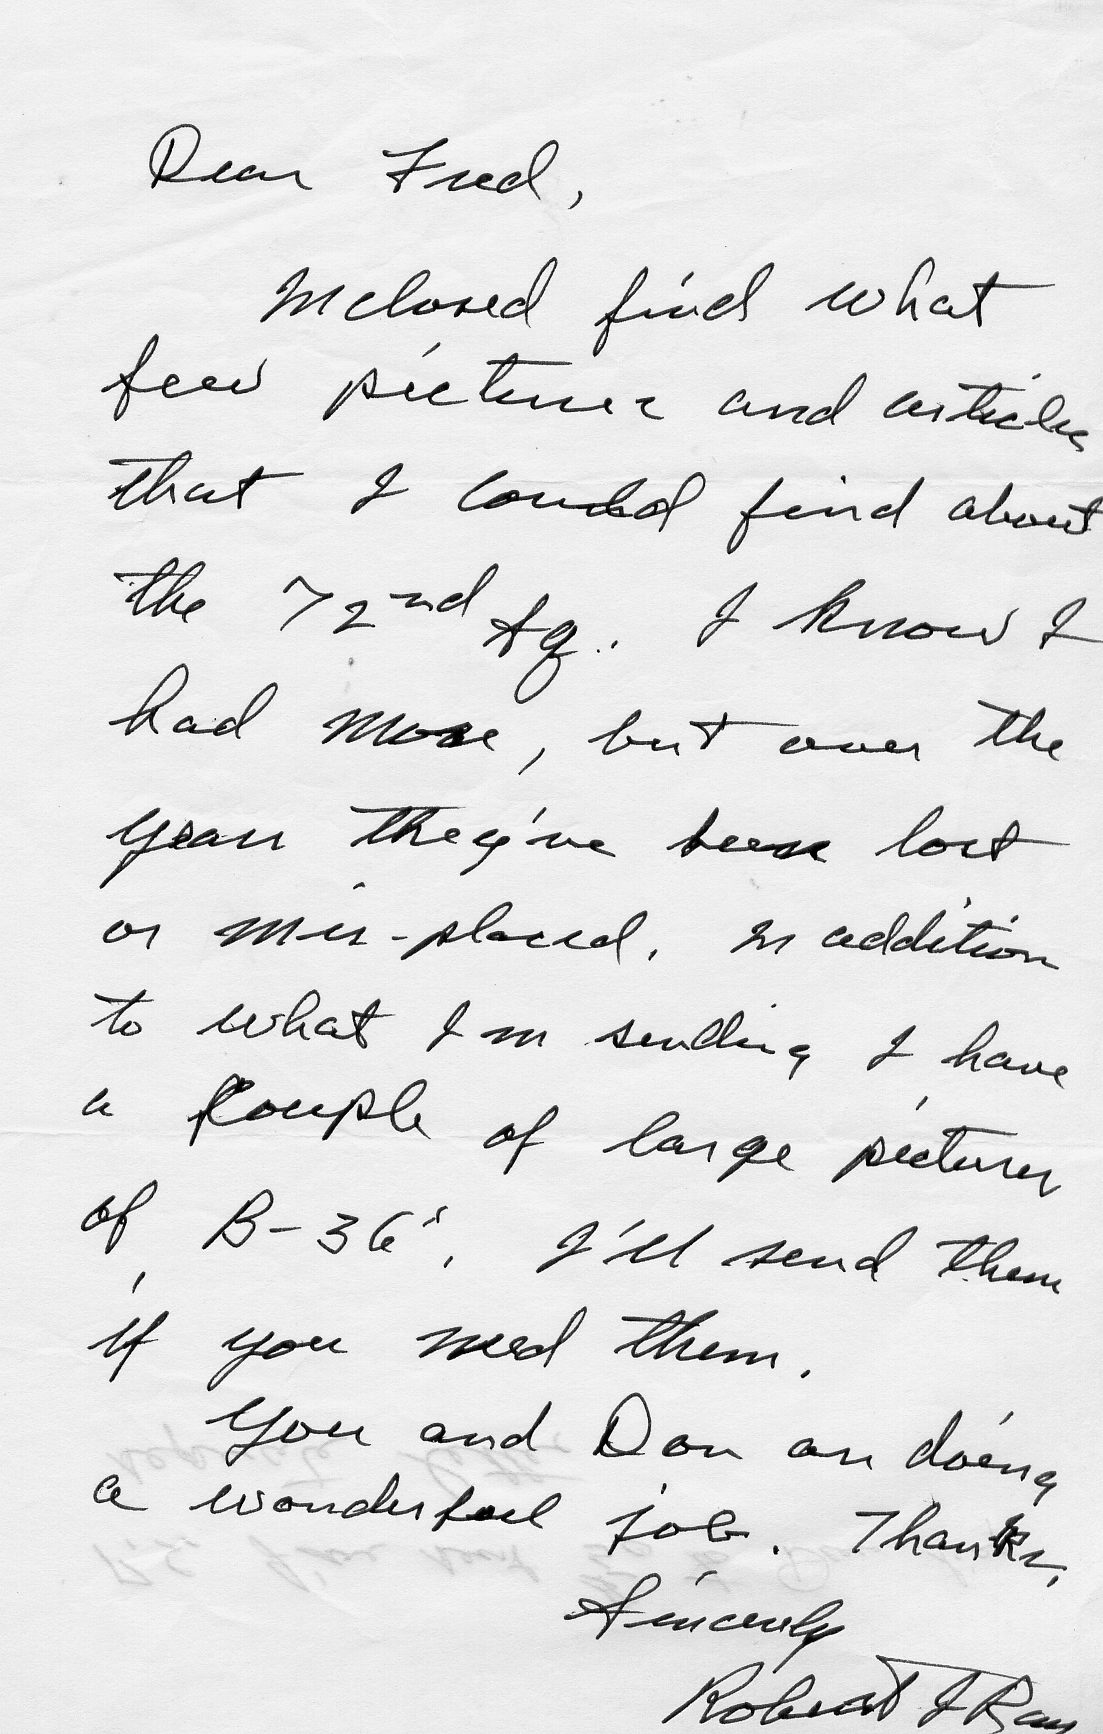 Dear Fred,
Inclosed find what
few pictures and articles
that I could find about
the 72nd Sq.. I know I
had more, but over the
years they've been lost
or mis-placed. In addition
to what I'm sending I have
a couple of large pictures
of B-36's. I'll send them
if you need them.
You and Don are doing
a wonderful job. Thanks,
Sincerely
Robert J Ray